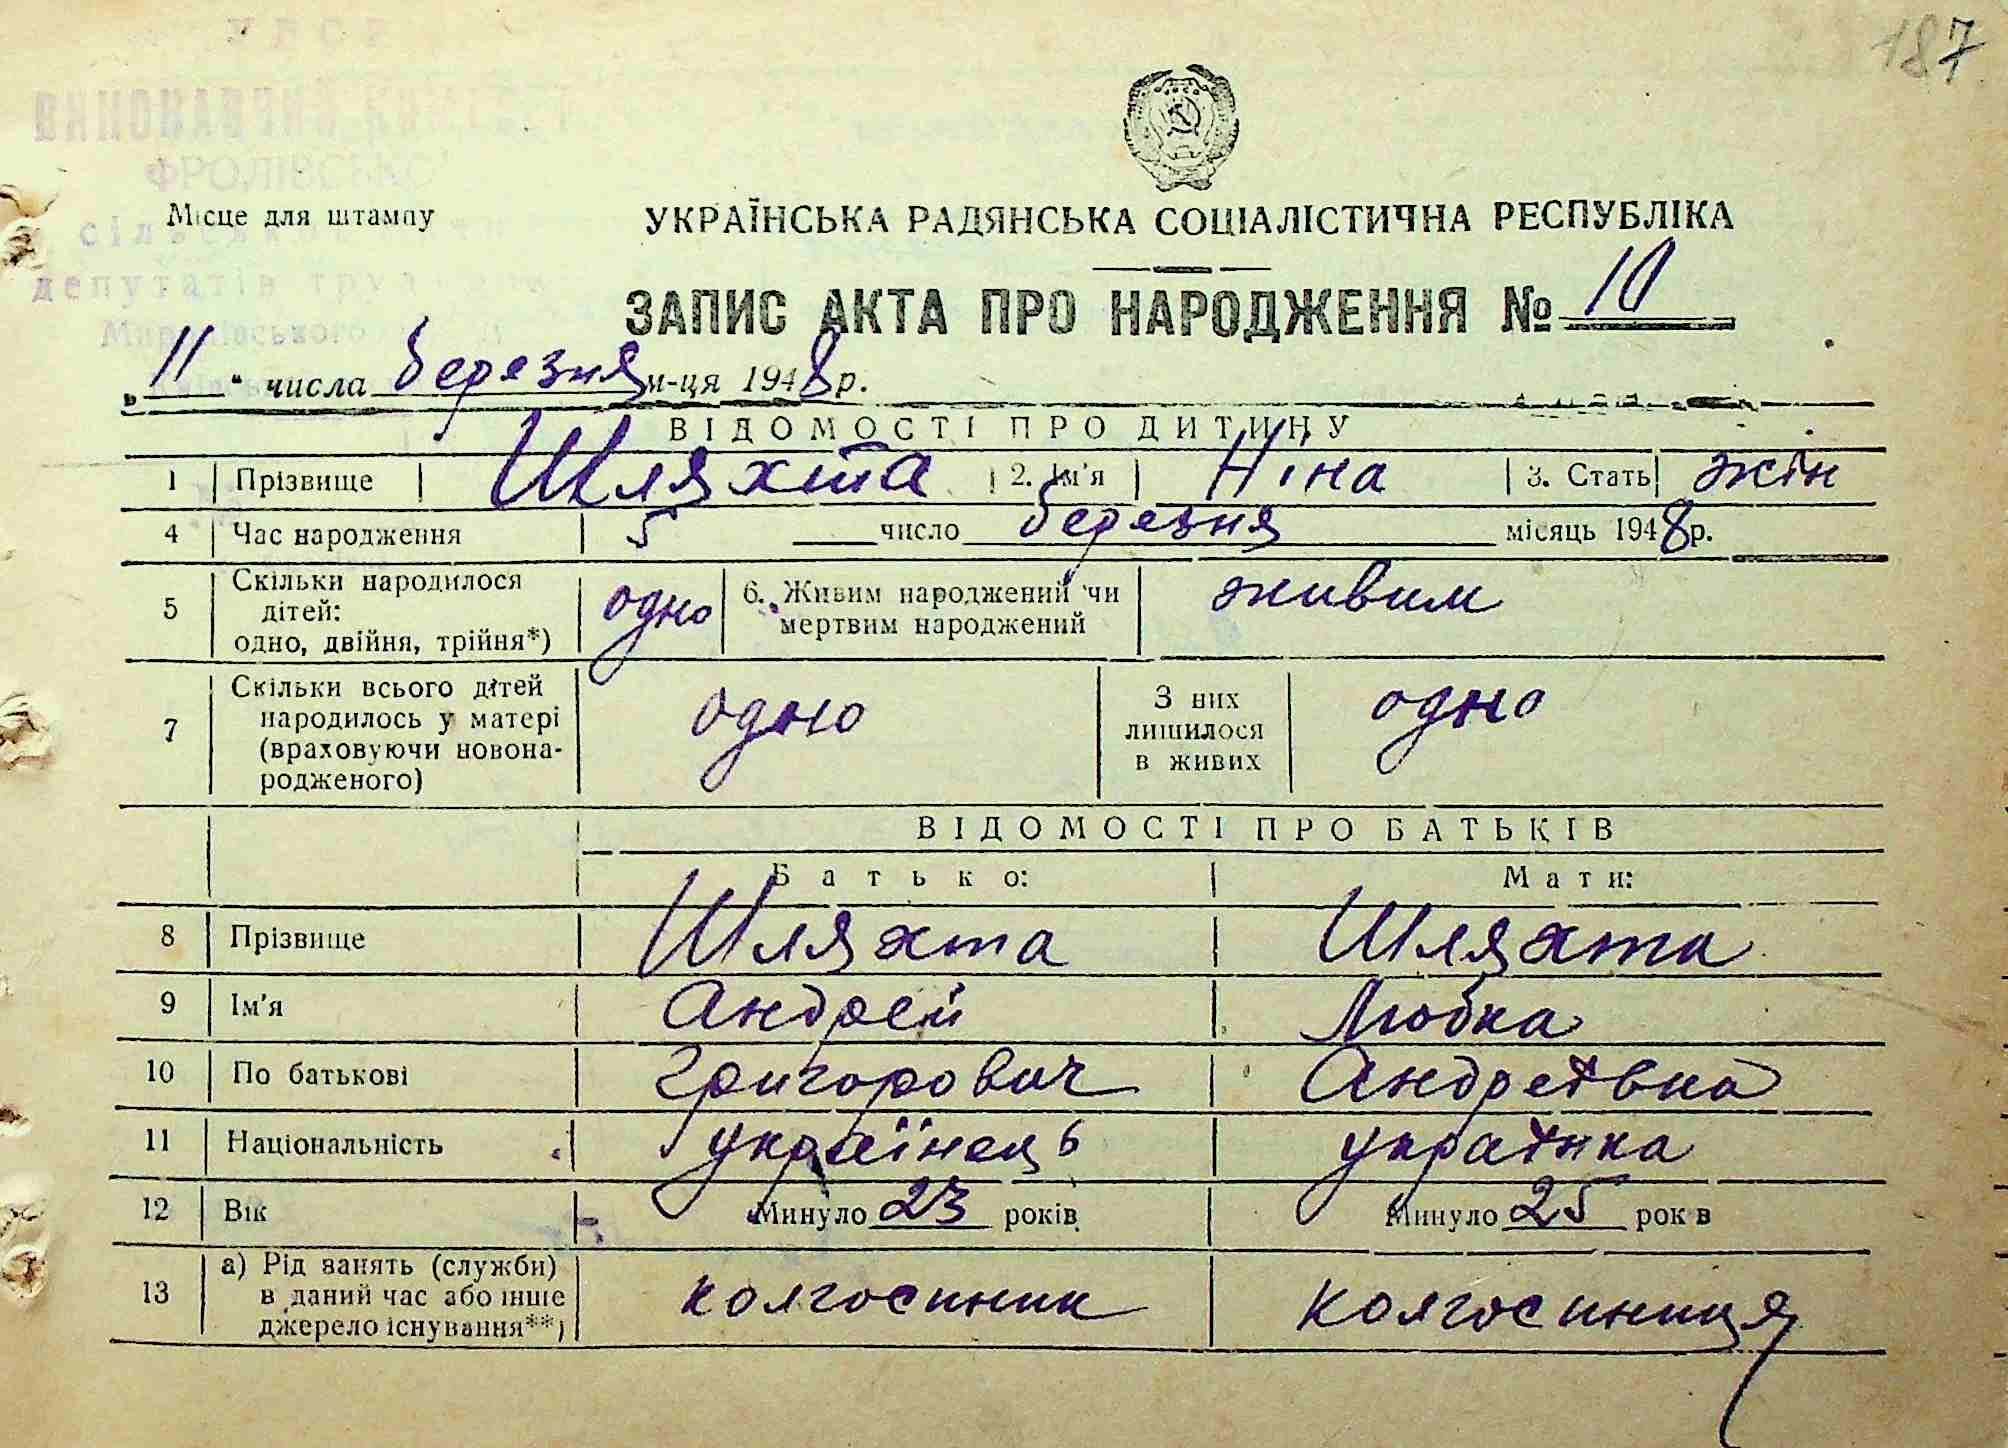 187
УРСР
ВИКОНАВЧИЙ КОМІТЕТ
ФРОЛІВСЬКО
Місце для штампу
депутатів
УКРАЇНСЬКА РАДЯНСЬКА СОЦІАЛІСТИЧНА РЕСПУБЛІКА
ЗАПИС АКТА ПРО НАРОДЖЕННЯ № 10
„11“ числа березня м-ця 1948 р.
ВІДОМОСТІ ПРО ДИТИНУ
1 Прізвище Шляхта 2. Ім'я Ніна 3. Стать жін
4 Час народження 5 число березня місяць 1948 р.
5 Скільки народилося дітей: одно, двійня, трійня*) одно 6. Живим народжений чи мертвим народжений живим
7 Скільки всього дітей народилось у матері (враховуючи новонародженого) одно З них лишилося в живих одно
ВІДОМОСТІ ПРО БАТЬКІВ
Батько: Мати:
8 Прізвище Шляхта Шляхта
9 Ім'я Андрей Любка
10 По батькові Григорович Андреївна
11 Національність українець українка
12 Вік Минуло 23 років Минуло 25 рок в
13 а) Рід занять (служби) в даний час або інше джерело існування**) колгоспник колгоспниця